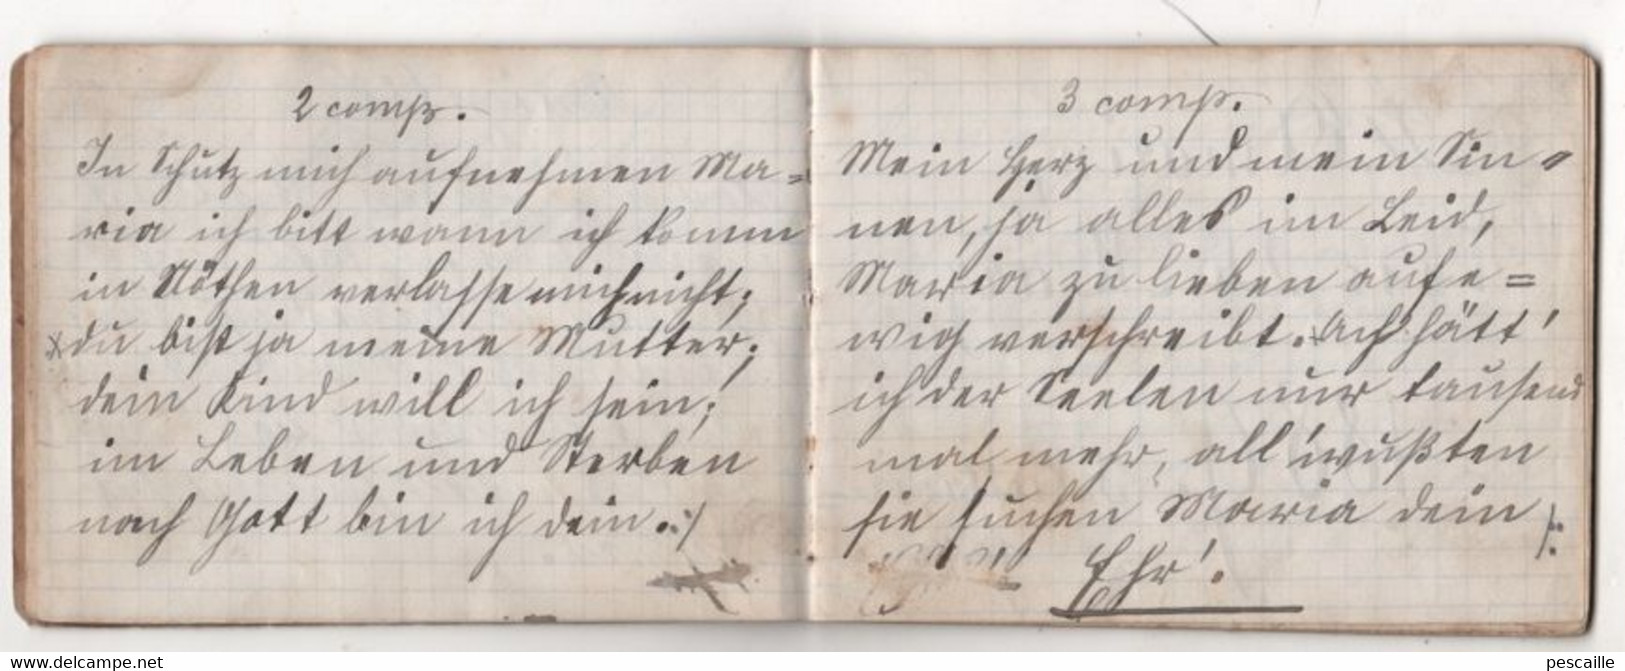 2 comp.
In Schutz mich aufnehmen Ma-
ria ich bitt wann ich komm
in Nöthen verlasse mich nicht;
du bist ja meine Mutter;
dein Kind will ich sein;
im Leben und Sterben
nach Gott bin ich dein. :/
3 comp.
Mein Herz und mein Sin-
nen, ja alles im Leid,
Maria zu lieben auf e=
wig verschreibt. Ach hätt'
ich der Seelen nur tausend
mal mehr, all' wußten
sie suchen Maria dein /:
Ehr'.
www.delcampe.net
pescaille